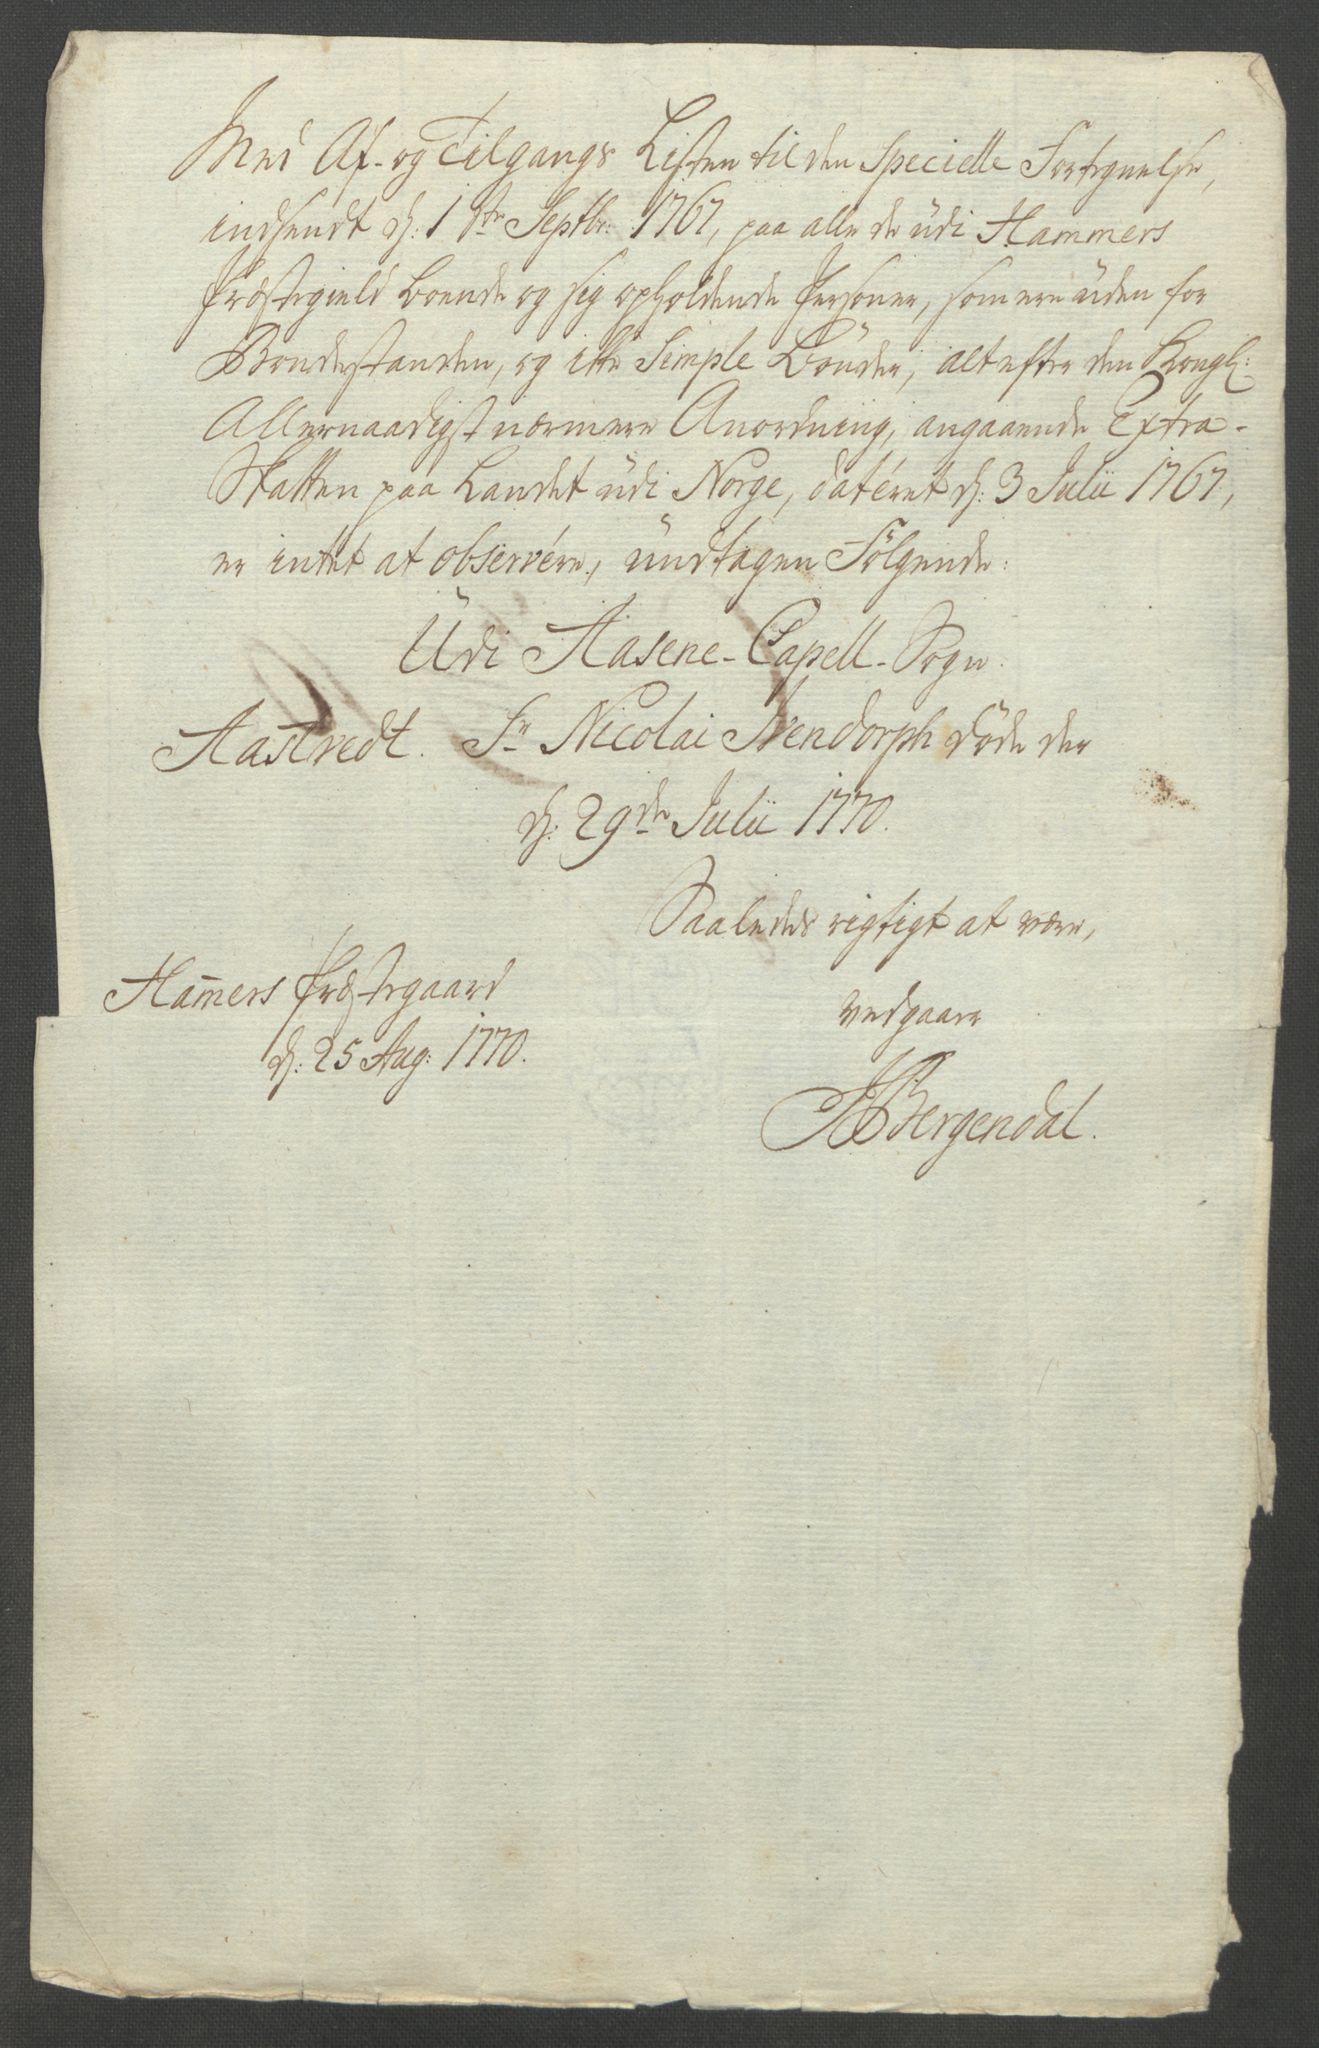 Med Af- og Tilgangs Listen til den Specielle Fortegnelse,
indsendt d: 1ste Septbr: 1767, paa alle de üdi Hammers
Præstegield boende og sig opholdende Personer, som ere uden for
Bondestanden, og ikke Simple Bönder, alt efter den Kongl:
Allernaadigst nærmere Anordning, angaaende Extra-
Skatten paa Landet üdi Norge, dateret d: 3 Julii 1767,
er intet at observére, undtagen Fölgende:
Üdi Aasene-Capell-Sogn.
Aastvedt. Sr Nicolai Wendorph döde der
d: 29de Julii 1770.
Saaledes rigtigt at være,
vedgaaer
Ham̄ers Præstegaard
d: 25 Aug: 1770.
Bergendal.